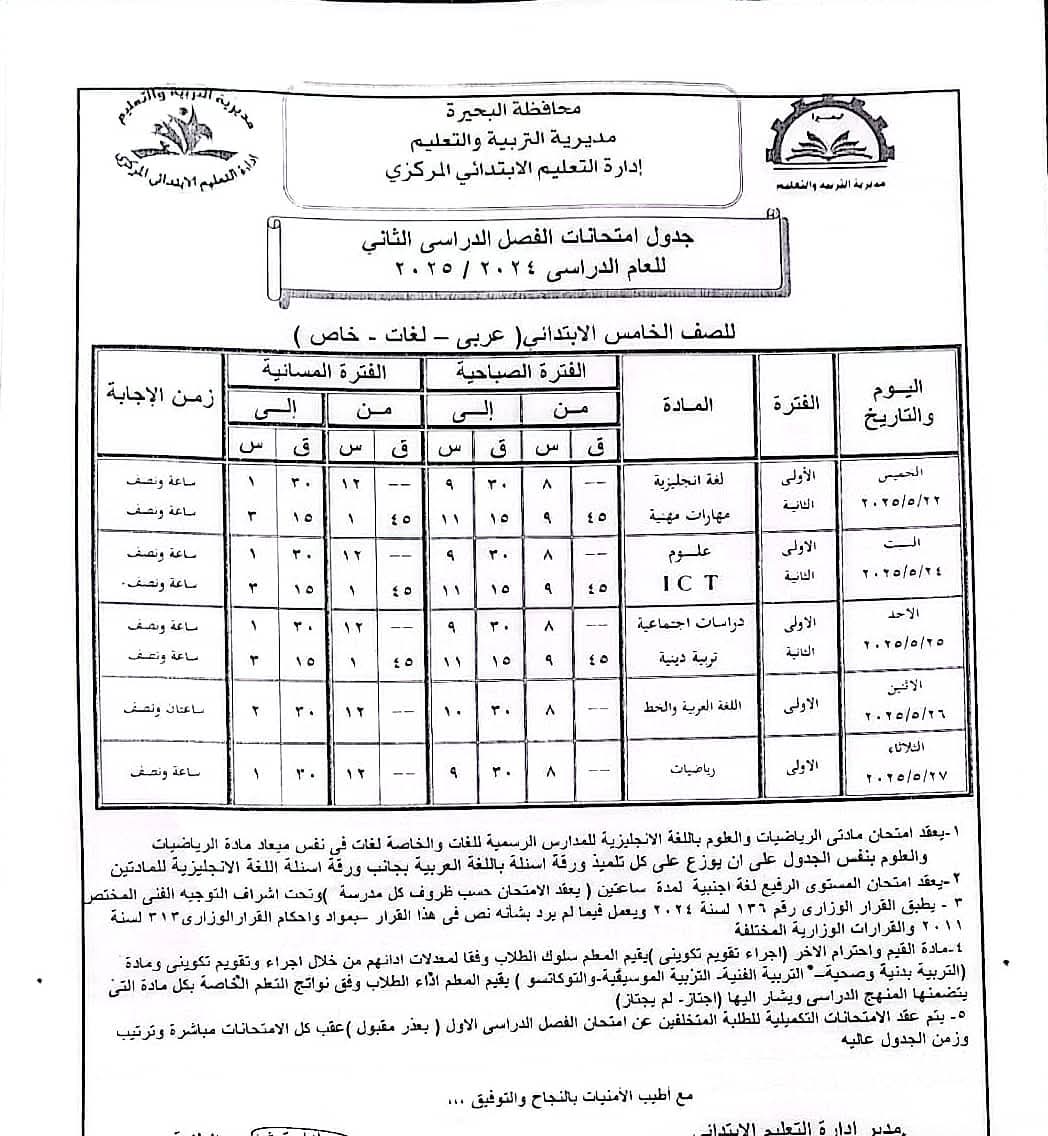 مديرية التربية والتعليم
إدارة التعليم الابتدائى المركزى
محافظة البحيرة
مديرية التربية والتعليم
إدارة التعليم الابتدائي المركزي
مديرية التربية والتعليم
جدول امتحانات الفصل الدراسى الثاني
للعام الدراسى ٢٠٢٤ / ٢٠٢٥
للصف الخامس الابتدائى( عربى – لغات - خاص )
اليوم والتاريخ الفترة المادة الفترة الصباحية الفترة المسائية زمن الإجابة
من إلى من إلى
ق س ق س ق س ق س
الخميس الأولى لغة انجليزية -- ٨ ٣٠ ٩ -- ١٢ ٣٠ ١ ساعة ونصف
٢٠٢٥/٥/٢٢ الثانية مهارات مهنية ٤٥ ٩ ١٥ ١١ ٤٥ ١ ١٥ ٣ ساعة ونصف
السبت الاولى علوم -- ٨ ٣٠ ٩ -- ١٢ ٣٠ ١ ساعة ونصف
٢٠٢٥/٥/٢٤ الثانية ICT ٤٥ ٩ ١٥ ١١ ٤٥ ١ ١٥ ٣ ساعة ونصف
الاحد الاولى دراسات اجتماعية -- ٨ ٣٠ ٩ -- ١٢ ٣٠ ١ ساعة ونصف
٢٠٢٥/٥/٢٥ الثانية تربية دينية ٤٥ ٩ ١٥ ١١ ٤٥ ١ ١٥ ٣ ساعة ونصف
الاثنين ٢٠٢٥/٥/٢٦ الاولى اللغة العربية والخط -- ٨ ٣٠ ١٠ -- ١٢ ٣٠ ٢ ساعتان ونصف
الثلاثاء ٢٠٢٥/٥/٢٧ الاولى رياضيات -- ٨ ٣٠ ٩ -- ١٢ ٣٠ ١ ساعة ونصف
١-يعقد امتحان مادتى الرياضيات والعلوم باللغة الانجليزية للمدارس الرسمية للغات والخاصة لغات فى نفس ميعاد مادة الرياضيات
والعلوم بنفس الجدول على ان يوزع على كل تلميذ ورقة اسئلة باللغة العربية بجانب ورقة اسئلة اللغة الانجليزية للمادتين
٢-يعقد امتحان المستوى الرفيع لغة اجنبية لمدة ساعتين ( يعقد الامتحان حسب ظروف كل مدرسة )وتحت اشراف التوجيه الفنى المختص
٣ - يطبق القرار الوزارى رقم ١٣٦ لسنة ٢٠٢٤ ويعمل فيما لم يرد بشأنه نص فى هذا القرار –بمواد واحكام القرار الوزارى٣١٣ لسنة
٢٠١١ والقرارات الوزارية المختلفة
٤-مادة القيم واحترام الاخر (اجراء تقويم تكوينى )يقيم المعلم سلوك الطلاب وفقا لمعدلات ادائهم من خلال اجراء وتقويم تكوينى ومادة
(التربية بدنية وصحية– التربية الفنية- التربية الموسيقية-والتوكاتسو ) يقيم المعلم اداء الطلاب وفق نواتج التعلم الخاصة بكل مادة التى
يتضمنها المنهج الدراسى ويشار اليها (اجتاز- لم يجتاز)
٥- يتم عقد الامتحانات التكميلية للطلبة المتخلفين عن امتحان الفصل الدراسى الاول ( بعذر مقبول )عقب كل الامتحانات مباشرة وترتيب
وزمن الجدول عاليه
مع أطيب الأمنيات بالنجاح والتوفيق ،،،
مدير ادارة التعليم الابتدائى